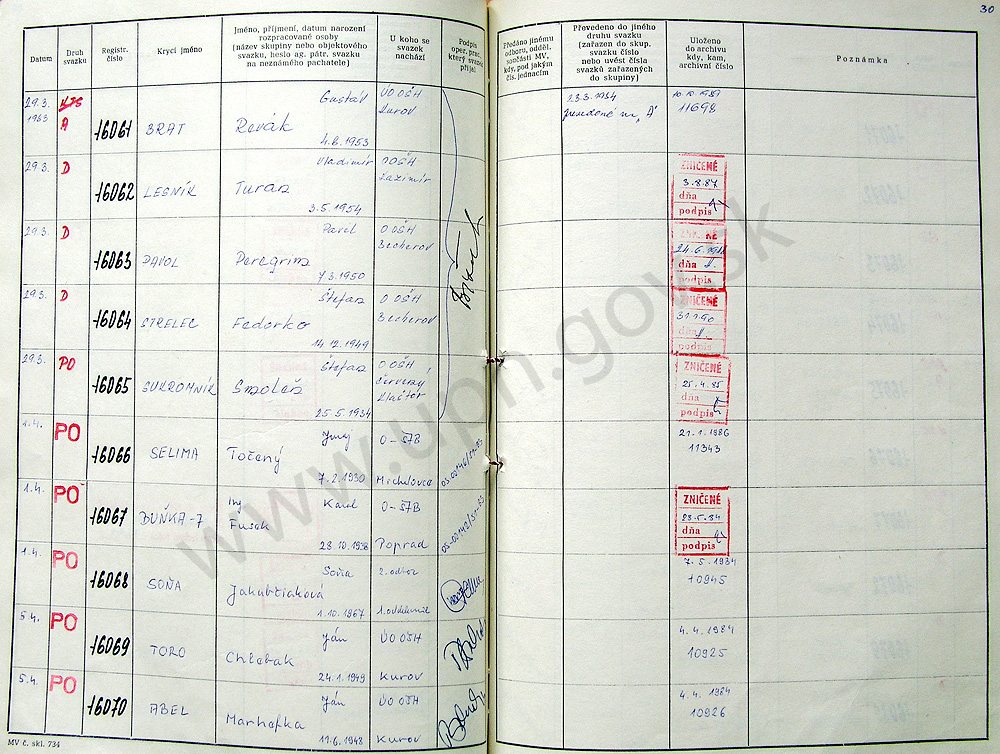 30
Datum
Druh svazku
Registr. číslo
Krycí jméno
Jméno, příjmení, datum narození
rozpracované osoby
(název skupiny nebo objektového
svazku, heslo ag. pátr. svazku
na neznámého pachatele)
U koho se
svazek
nachází
Podpis
oper. prac.,
který svazek
přijal
Předáno jinému
odboru, odděl.
součásti MV,
kdy, pod jakým
čís. jednacím
Převedeno do jiného
druhu svazku
(zařazen do skup.
svazku číslo
nebo uvést čísla
svazků zařazených
do skupiny)
Uloženo
do archivu
kdy, kam,
archivní číslo
Poznámka
29.3. 1983 A 16061 BRAT Gustáv Revák 4.8.1953 ÚO OŠH Kurov
23.3.1984 prevedené na "A" 10.10.1989 11698
29.3. D 16062 LESNÍK Vladimír Turas 3.5.1954 O OŠH
ZNIČENÉ 3.8.87 dňa podpis
29.3. D 16063 PAVOL Pavel Peregrim 7.3.1950 O OŠH Becherov
dňa podpis
29.3. D 16064 STRELEC Štefan Fedorko 14.12.1949 O OŠH Becherov
ZNIČENÉ dňa podpis
29.3. PO 16065 SUKROMNÍK Štefan Smoleš 25.5.1934 O OŠH Červený Kláštor
ZNIČENÉ 25.4.85 dňa podpis
1.4. PO 16066 SELIMA Juraj Točený 7.2.1930 O-ŠTB Michalovce
21.1.1986 11343
1.4. PO 16067 BUŇKA-7 Ing Karol Fusak 28.10.1938 O-ŠTB Poprad
ZNIČENÉ 23.5.84 dňa podpis
1.4. PO 16068 SOŇA Soňa Jakubčiaková 1.10.1967 2.odbor 1.oddelenie
7.5.1984 10945
5.4. PO 16069 TORO Ján Chlebak 24.1.1949 ÚO OŠH Kurov
4.4.1984 10925
5.4. PO 16070 ABEL Ján Marhefka 11.6.1948 ÚO OŠH Kurov
4.4.1984 10926
MV č. skl. 734
www.upn.gov.sk